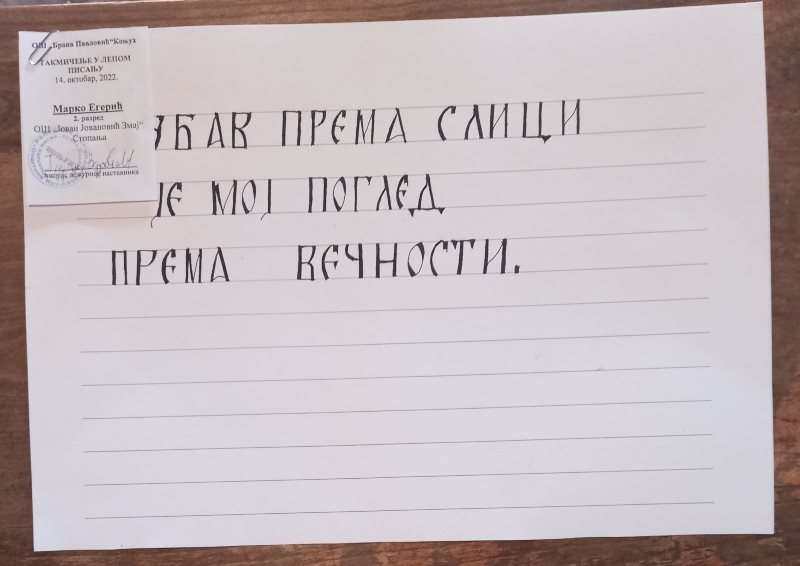 ОШ „Брана Павловић“ Коњух
ТАКМИЧЕЊЕ У ЛЕПОМ
ПИСАЊУ
14. октобар, 2022.
Марко Егерић
2. разред
ОШ „Јован Јовановић Змај“
Стопања
дежурног наставника
УБАВ ПРЕМА СЛИЦИ
ЈЕ МОЈ ПОГЛЕД
ПРЕМА ВЕЧНОСТИ.